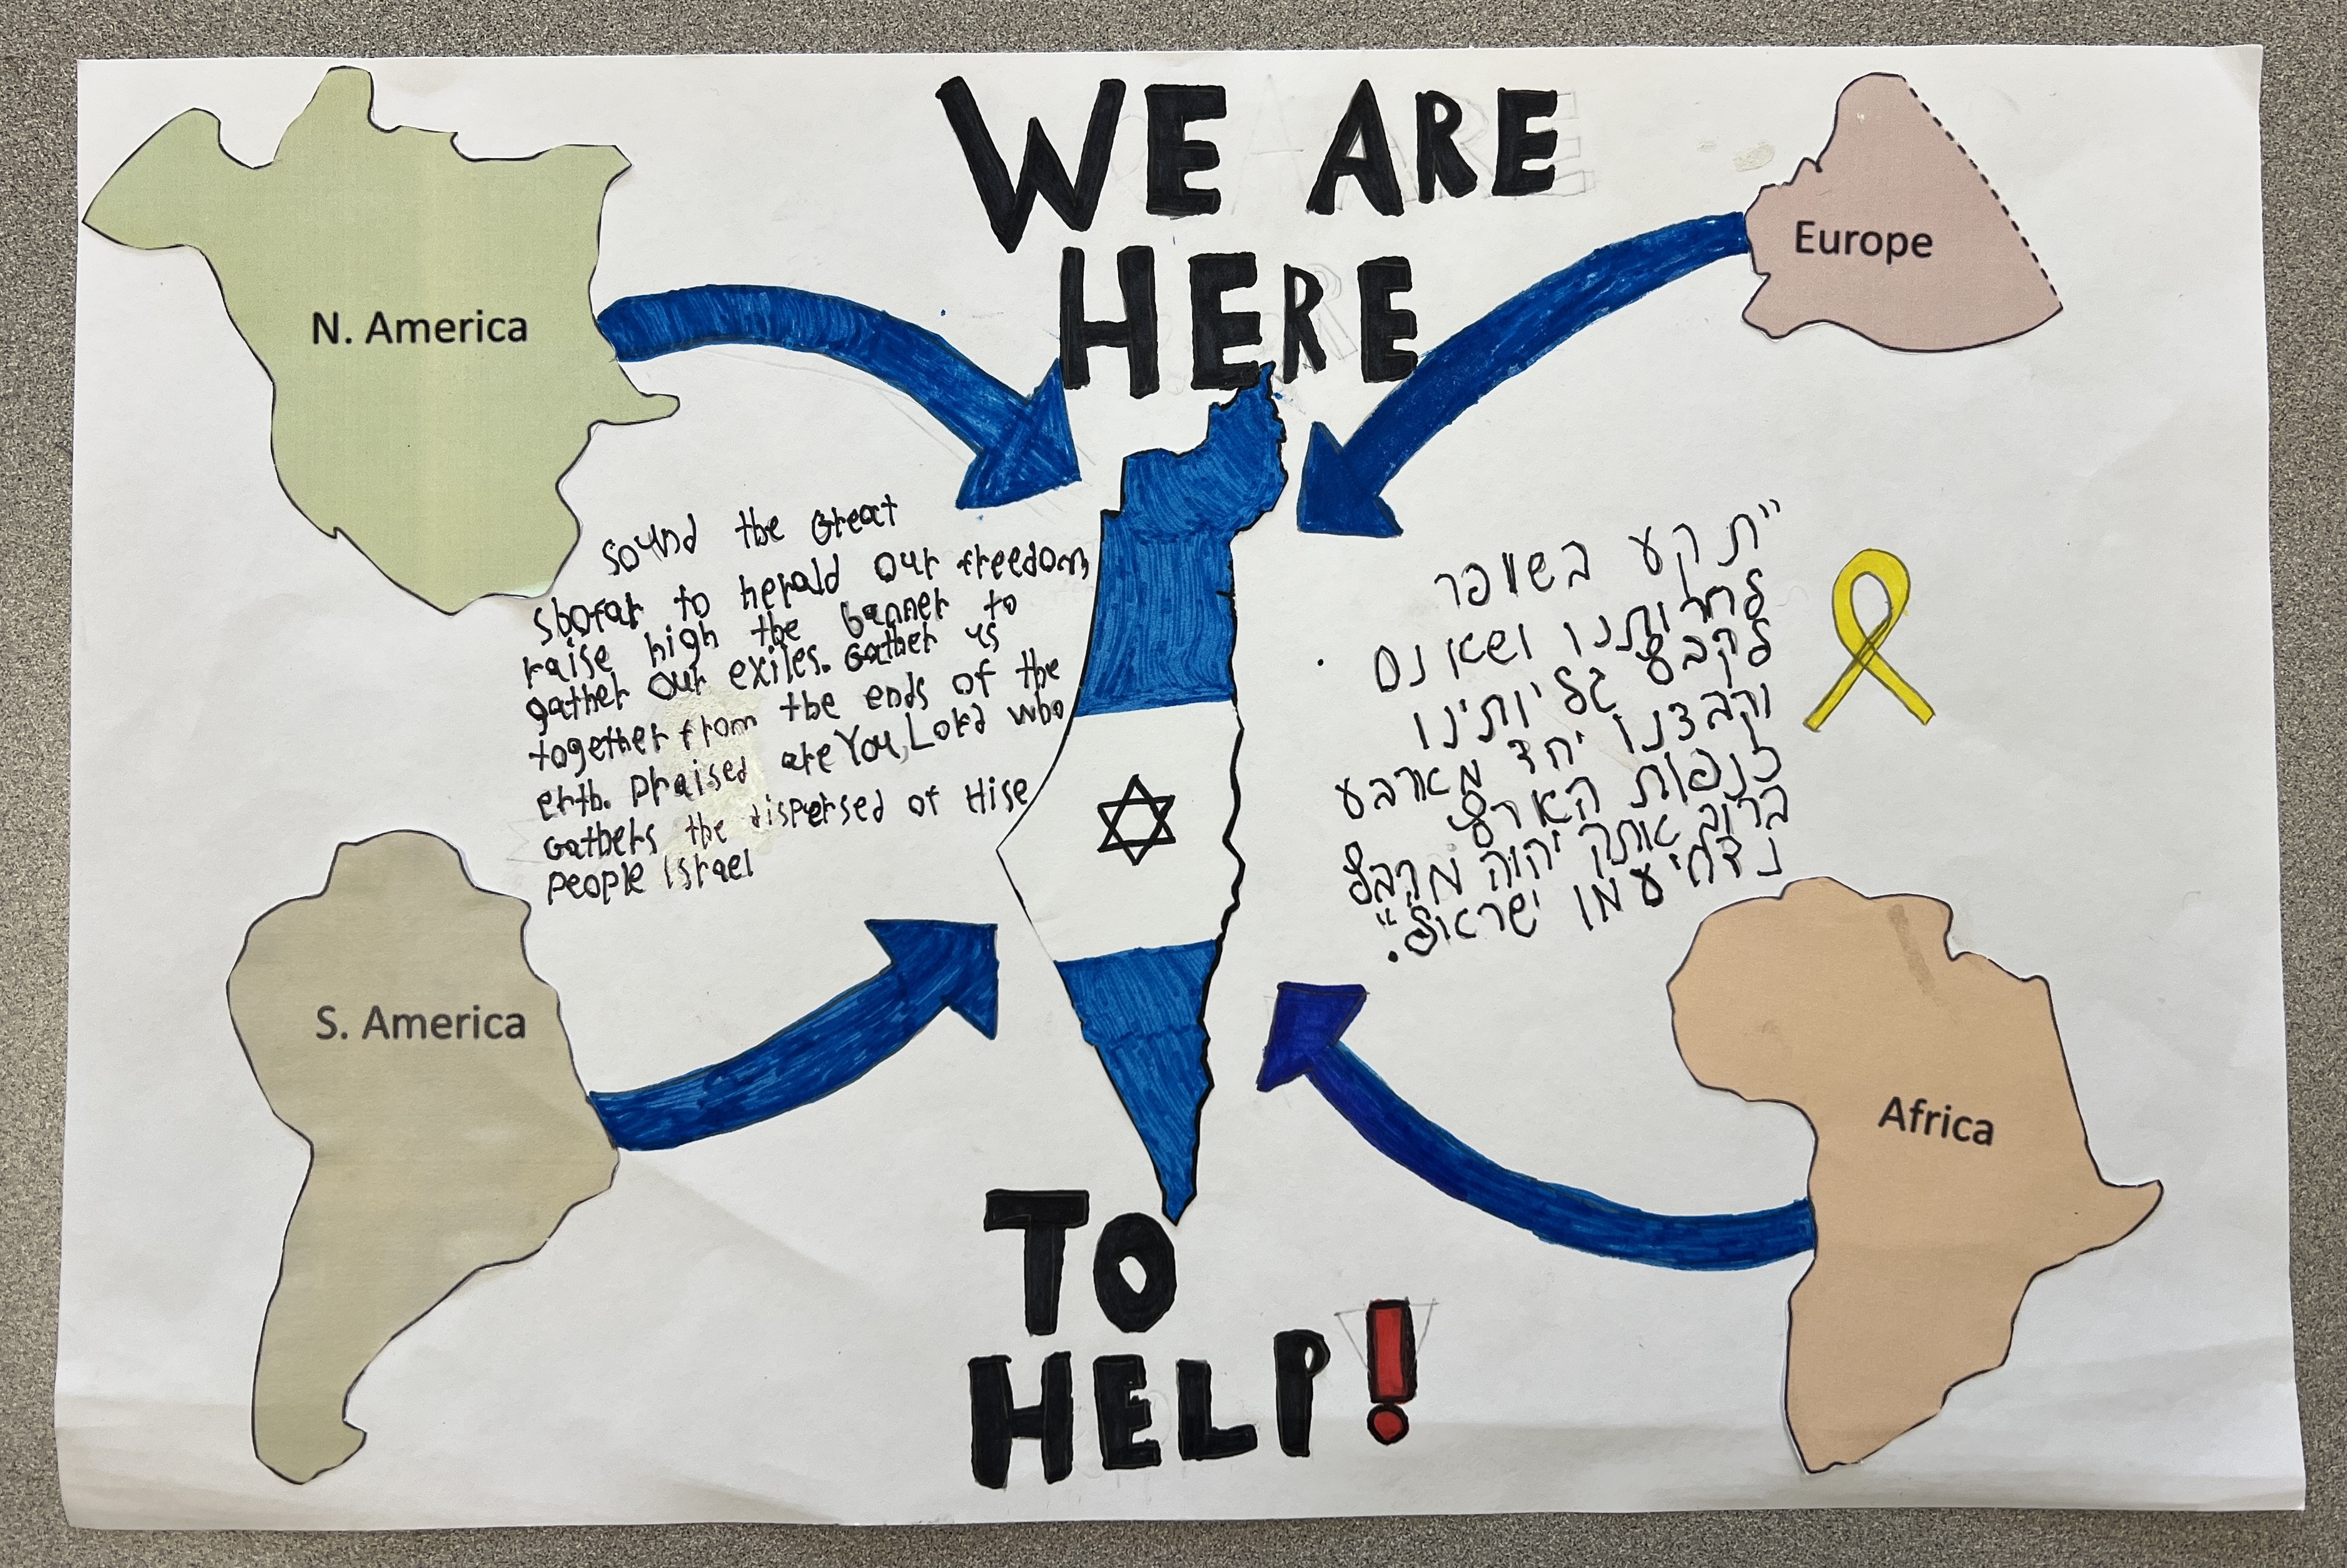 WE ARE
HERE
N. America
Europe
Sound the Great
shofar to herald our freedom
raise high the banner to
gather our exiles. Gather us
together from the ends of the
erth. Praised are You, Lord who
Gathers the dispersed of Hise
People Israel
"תקע בשופר
לחרותנו ושא נס
לקבץ גליותינו
וקבצנו יחד מארבע
כנפות הארץ
ברוך אתה יהוה מקבץ
נדחי עמו ישראל".
S. America
Africa
TO
HELP!